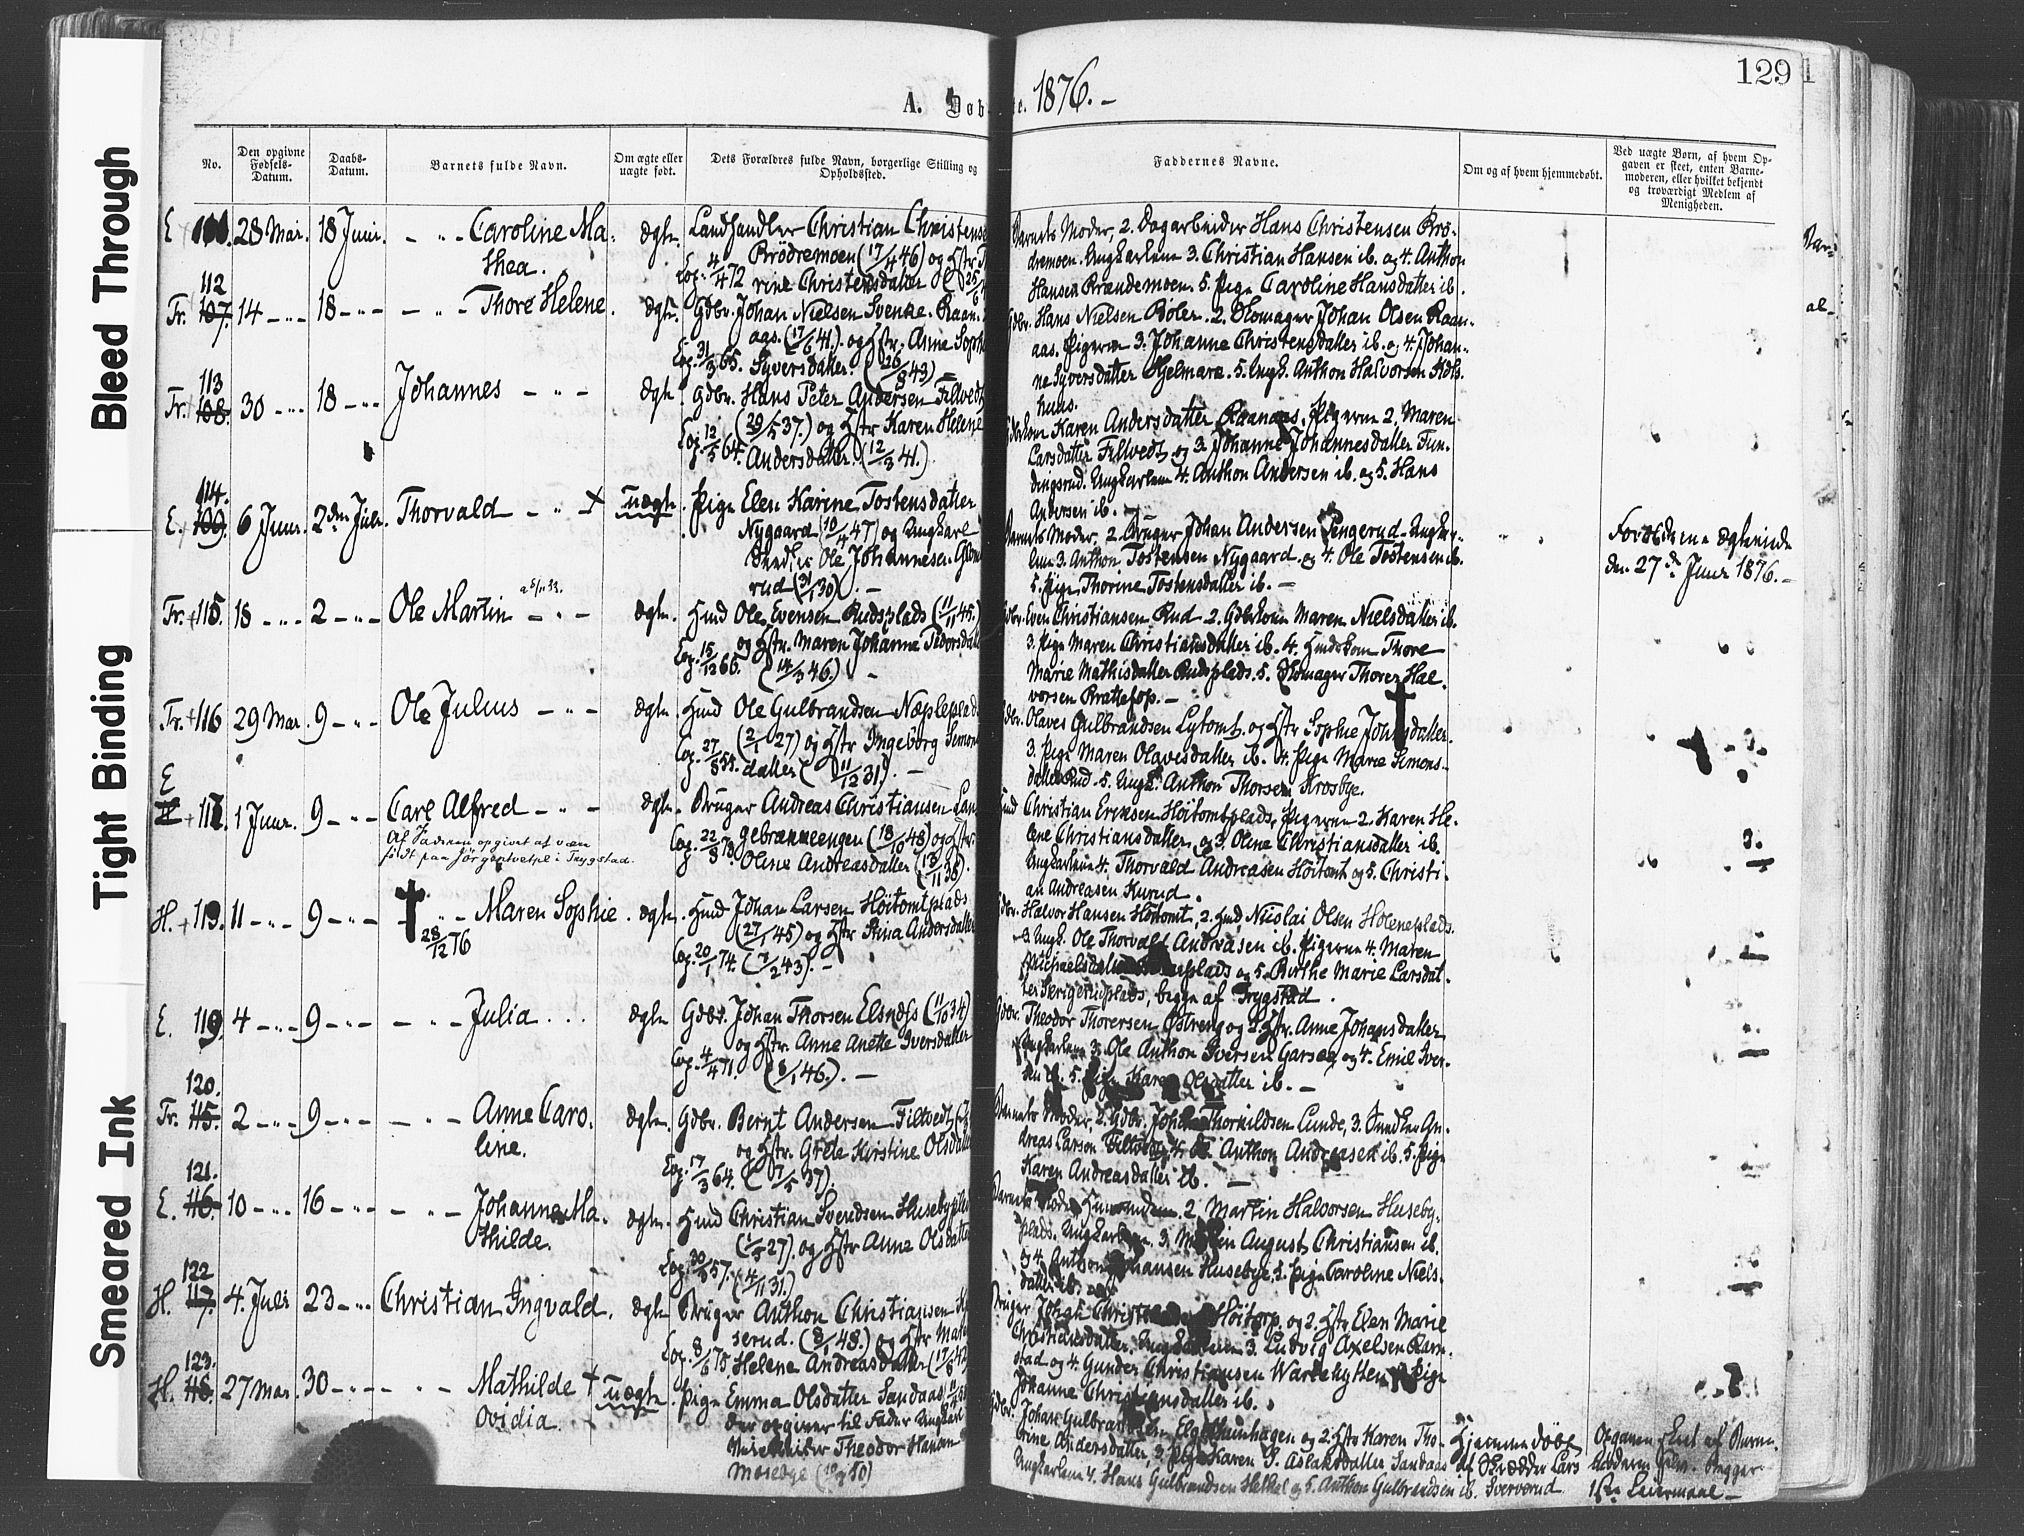 Bleed Through
Tight Binding
Smeared Ink
129
A. Døb
1876.
No.
Den opgivne Fødsels-Datum.
Daabs-Datum.
Barnets fulde Navn.
Om ægte eller uægte født.
Dets Forældres fulde Navn, borgerlige Stilling og Opholdssted.
Faddernes Navne.
Om og af hvem hjemmedøbt.
Ved uægte Børn, af hvem Opgaven er skeet, enten Barnemoderen, eller hvilket bekjendt og troværdigt Medlem af Menigheden.
E 111. 28 Mai. 18 Juni. Caroline Ma-
thea.
ægte. Landhandler Christian Christense
Brödremoen (17/4 46) og Hstr
Cop. 4/4 72 rine Christensdatter
Barnets Moder, 2. Dagarbeider Hans Christensen Brö-
dremoen. Ungkarlene 3. Christian Hansen ib. og 4. Anthon
Hansen Brændemoen. 5. Pige Caroline Hansdatter ib.
112
Fr. 107. 14 18 Thore Helene.
ægte. Gdbr. Johan Nielsen Svenke. Raan-
aas. (17/6 41.) og Hstr. Anne Soph
Cop. 31/3 65. Syversdatter. (26/8 43)
Gdbr. Hans Nielsen Böler. 2. Skomager Johan Olsen Raan-
aas. Pigerne 3. Johanne Christensdatter ib. og 4. Johan-
ne Syversdatter Gjelmara. 5. Ungk. Anthon Halvorsen
huus.
113
Fr. 108. 30 18 Johannes
ægte Gdbr. Hans Peter Andersen Filtvedt
(29/5 37.) og Hstr Karen Helene
Cop. 12/5 64. Andersdatter. (12/3 41.)
Karen Andersdatter Raanaas, Pigerne 2. Maren
Larsdatter Filtvedt og 3. Johanne Johannesdatter Fun-
dingsrud. Ungkarlene 4. Anthon Andersen ib. og 5. Hans
Andersen ib.
114.
E. 109. 6 Juni. 2den Juli. Thorvald
uægte. Pige Elen Karine Tostensdatter
Nygaard (10/4 47) og Ungkarl
Snedker Ole Johannesen
rud (31/1 30).
Barnets Moder, 2. Bruger Johan Andersen Lengerud. Ungkar-
lene 3. Anthon Tostensen Nygaard og 4. Ole Tostensen ib.
5. Pige Thorine Tostensdatter ib.
Forældrene ægteviede
den 27de Juni 1876.
Fr. 115. 18 2 Ole Martin
ægte. Hmd Ole Evensen Rudsplads (11/11 45.)
og Hstr. Maren Johanne Pedersdat
Cop. 15/12 66. (14/3 46.)
Gdbr. Even Christiansen Rud 2. Gdbrkone Maren Nielsdatter ib.
3. Pige Maren Christiansdatter ib. 4. Hmdskone Thore
Marie Mathisdatter Rudsplads. 5. Skomager Thorer Hal-
vorsen Brattefos.
Fr. 116 29 Mai. 9 Ole Julius
ægte. Hmd Ole Gulbrandsen Næpleplads
(2/1 27) og Hstr Ingeborg Simons
Cop. 27/8 55. datter (11/12 31).
Gdbr. Olaves Gulbrandsen Lytomt og Hstr Sophie Johnsdatter.
3. Pige Maren Olavesdatter ib. 4. Pige Marie Simons-
datter Rud. 5. Ungk. Anthon Thorsen Krosbye.
E 117. 1 Juni. 9 Carl Alfred
Af Faderen opgivet at være
født paa Jörgentvedt i Trygstad.
ægte. Bruger Andreas Christiansen Lan
gebrænneengen (18/10 48) og Hstr.
Cop. 22/3 73. Oline Andreasdatter (13/11 38).
Hmd Christian Ericksen Höitomtplads, Pigerne 2. Karen He-
lene Christiansdatter og 3. Oline Christiansdatter ib.
Ungkarlene 4. Thorvald Andreasen Höitomt og 5. Christi-
an Andreasen Kurud.
H. 118. 11 9 Maren Sophie
28/12 76
ægte. Hmd Johan Larsen Höitomtplads
(27/1 45) og Hstr Stina Andersdatter
Cop. 20/1 74. (7/2 43).
Gdbr. Halvor Hansen Höitomt, 2. Hmd Nicolai Olsen Holeneplads.
3. Ungk. Ole Thorvald Andreasen ib. Pigerne 4. Maren
Michaelsdatter plads og 5. Berthe Marie Larsdat-
ter plads, begge af Trygstad.
E. 119. 4 9 Julia
ægte Gdbr. Johan Thorsen Elsnæs (11/10 34)
og Hstr. Anne Anette Iversdatter
Cop. 4/4 71. (8/1 46.).
Gdbr. Theodor Thorersen Østreng og 2. Hstr. Anne Johansdatter
Ungkarlene 3. Ole Anthon Iversen Garsee og 4. Emil Iver-
sen ib. 5. Pige Karen Olsdatter ib.
120.
Fr. 115. 2 9 Anne Caro-
line.
ægte. Gdbr. Bernt Andersen Filtvedt
og Hstr. Grete Kirstine Olsdatter
Cop. 17/3 64. (17/5 37).
Barnets Moder, 2. Gdbr. Johan Thorkildsen Lunde, 3. Snedker An-
dreas Larsen Filtvedt 4. Anthon Andreasen ib. 5. Pige
Karen Andreasdatter ib.
121.
E. 116. 10 16 Johanne Ma-
thilde.
ægte. Hmd Christian Svendsen Husebyplads
(1/5 27). og Hstr Anne Olsdatter
Cop. 30/3 57. (4/11 31.)
Barnets Moder 2. Martin Halvorsen Huseby-
plads. Ungkarlene 3. August Christiansen ib.
og 4. Anthon Johansen Husebye, 5. Pige Caroline Niels-
datter ib.
122
H. 117. 4. Juli 23 Christian Ingvald.
ægte Bruger Anthon Christiansen
serud. (8/1 48.) og Hstr Maren
Cop. 8/6 75 Helene Andreasdatter (17/8 42)
Bruger Johan Höitorp. og 2. Hstr Elen Marie
Christiansdatter. Ungkarlene 3. Ludvig Axelsen Ram-
stad og 4. Gunder Christiansen Wardehytten. Pige
Johanne Christiansdatter ib.
123.
H. 118. 27 Mai. 30 Mathilde
Ovidia.
uægte. Pige Emma Olsdatter Sandaas
der opgiver til Fader Ungkarl
Theodor Hansen
Mosebye
Gdbr. Johan Gulbrandsen og 2. Hstr Karen Tho-
rine Andersdatter. 3. Pige Karen S. Aslaksdatter Sandaas
Ungkarlene 4. Hans Gulbrandsen Helkel og 5. Anthon Gulbrandsen ib.
Hjemmedöbt
af Skrædder Lars
Sververud
Opgaven skeet af Barne-
moderen selv. Begges
1ste Leiermaal